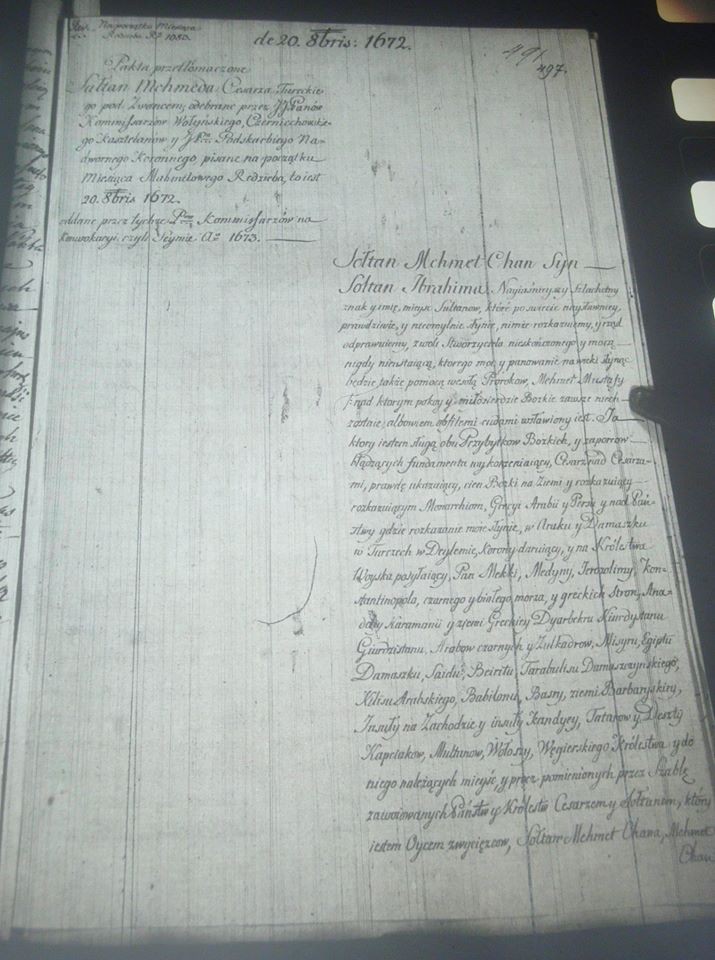 Na początku Miesiąca
Redzeba Rż 1083.
de 20. 8bris: 1672.
491
497.
Pakta przetłomaczone
Sułtan Mehmeda Cesarza Tureckie-
go pod Żwancem, odebrane przez JJ Panow
Kommissarzow Wołyńskiego, Czerniechowskie-
go Kasztelanow y JP Podskarbiego Na-
dwornego Koronnego, pisane na początku
Miesiąca Mahmetowego Redzieba, to iest
20. 8bris 1672.
oddane przez tychże Kommissarzow na
Konwokacyi, czyli Seymie Ao 1673.
Sołtan Mehmet Chan Syn
Sołtan Ibrahima, Nayiaśnieyszy szlachetny
znak y imię, mieysc Sułtanow, które po świecie
prawdziwie, y nieomylnie słynie, nimie rozkazuiemy, y rząd
odprawuiemy, z woli Stworzyciela nieskończonego y mocą
nigdy nieustaiącą, ktorego moc y panowanie na wieki słynąć
będzie, także pomocą wesołą Prorokow, Mehmet Mustafy
/: nad ktorym pokoy y miłosierdzie Bozkie zawsze niech
zostaie, albowiem obfitemi cudami wsławiony iest. Ja
ktory iestem sługą obu Przybytkow Bozkich, y zaporow
błądzących fundamenta wykorzeniaiący, Cesarz nad Cesarza-
mi, prawdę ukazuiący, cień Bozki na Ziemi y rozkazuiący
rozkazuiącym Monarchom, Grecyi Arabii y Persyi y nad Pań-
stwy gdzie rozkazanie moie słynie, w Araku y Damaszku
w Turczech w Deylemie, Korony daruiący, y na Krolestwa
Woyska posyłaiący, Pan Mekki, Medyny, Jerozolimy, Kon-
stantinopola, czarnego y białego morza, y greckich stron, Ana-
doly Karamanii y ziemi Greckiey Dyarbekru Kiurdystanu
Giurdzistanu, Arabow czornych y Zulkadrow, Misyru, Egiptu
Damaszku, Saidu, Beiritu, Tarabulusu Damaszczyńskiego,
Kilisu Arabskiego, Babilonu, Basry, ziemi Barbaryskiey,
Insuły na Zachodzie y insuły Kandyey, Tatarow y Deszty
Kapciakow, Multanow, Wołoszy, Węgierskiego Krolestwa y do
niego należących mieysc, y procz pomienionych przez Szablę
zawoiowanych Państw y Krolestw Cesarzem y Sołtanem, który
iestem Oycem zwycięzcow, Sołtan Mehmet Chana, Mehmet
Chan